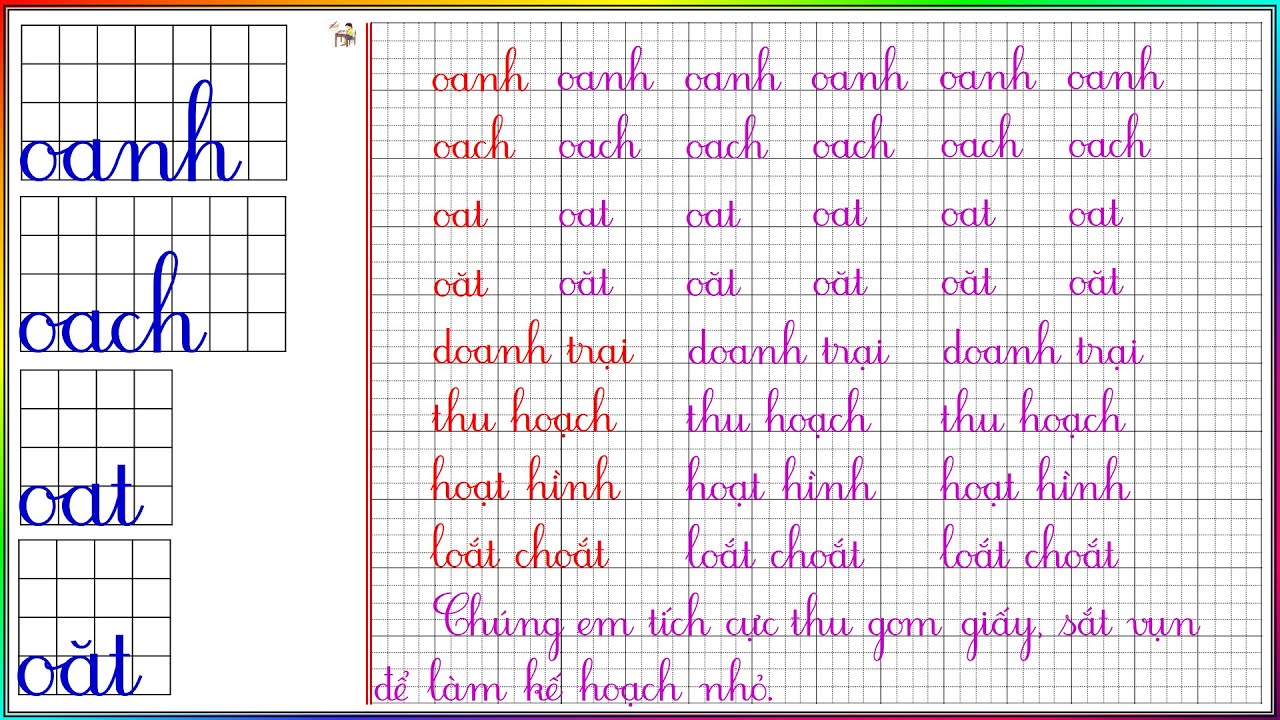 oanh
oach
oat
oăt
oanh oanh oanh oanh oanh oanh
oach oach oach oach oach oach
oat oat oat oat oat oat
oăt oăt oăt oăt oăt oăt
doanh trại doanh trại doanh trại
thu hoạch thu hoạch thu hoạch
hoạt hình hoạt hình hoạt hình
loắt choắt loắt choắt loắt choắt
Chúng em tích cực thu gom giấy, sắt vụn
để làm kế hoạch nhỏ.